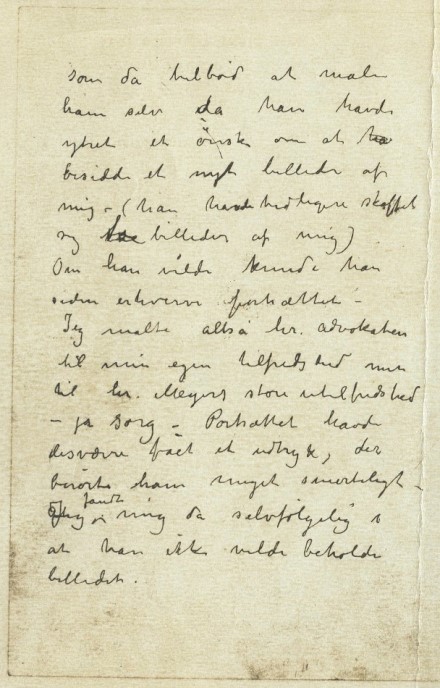 som da tilbød at male
ham selv da han havde
ytret et önske om at ha
besidde et nyt billede af
mig – (han havde tidligere skaffet
sig to billeder af mig)
Om han vilde kunde han
siden erhverve portrættet –
Jeg malte altså hr. advokaten
til min egen tilfredshed men
til hr. Meyers store utilfredshed
– ja sorg – Portrættet havde
desværre fået et udtryk, der
berørte ham meget smerteligt –
Jeg fandt mig da selvfølgelig i
at han ikke vilde beholde
billedet.